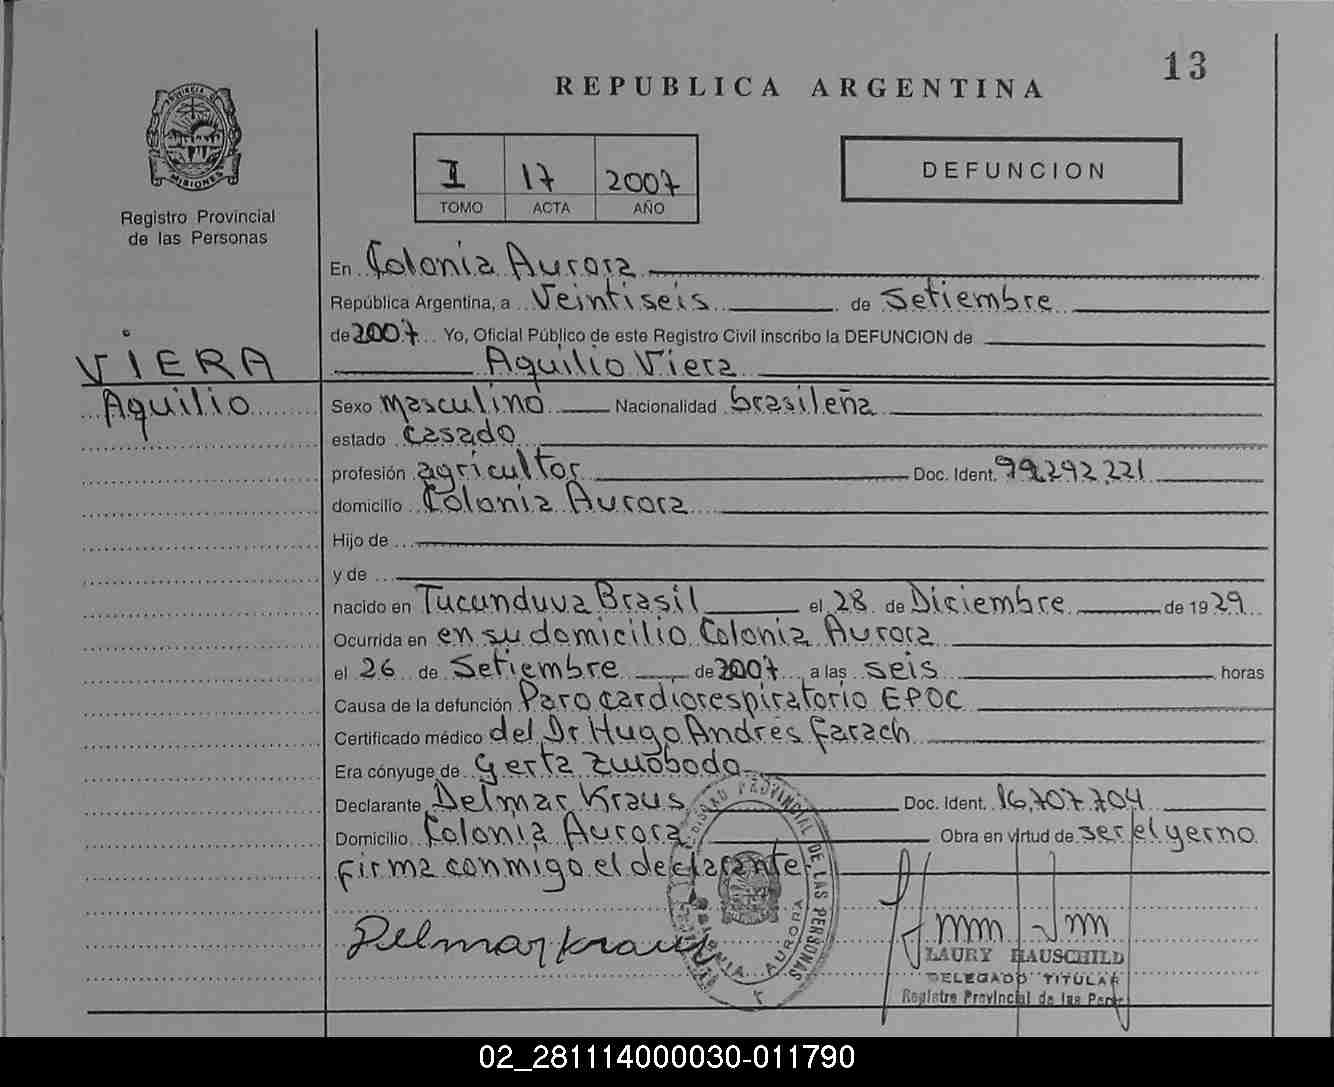 13
REPUBLICA ARGENTINA
PROVINCIA DE
MISIONES
Registro Provincial
de las Personas
I 17 2007
TOMO ACTA AÑO
DEFUNCION
En Colonia Aurora
República Argentina, a Veintiseis de Setiembre
de 2007 Yo, Oficial Público de este Registro Civil inscribo la DEFUNCION de
VIERA Aquilio Viera
Aquilio Sexo masculino Nacionalidad brasileña
estado casado
profesión agricultor Doc. Ident. 99.292.221
domicilio Colonia Aurora
Hijo de
y de
nacido en Tucunduva Brasil el 28 de Diciembre de 1929
Ocurrida en en su domicilio Colonia Aurora
el 26 de Setiembre de 2007 a las seis horas
Causa de la defunción Paro cardiorespiratorio EPOC
Certificado médico del Dr Hugo Andrés Farach
Era cónyuge de Gerta Zwoboda
Declarante Delmar Kraus Doc. Ident. 16.707.704
Domicilio Colonia Aurora Obra en virtud de ser el yerno
firma conmigo el declarante.
Delmar Kraus
PROVINCIAL DE LAS PERSONAS
AURORA
LAURY HAUSCHILD
DELEGADO TITULAR
Registro Provincial de las Pers.
02_281114000030-011790